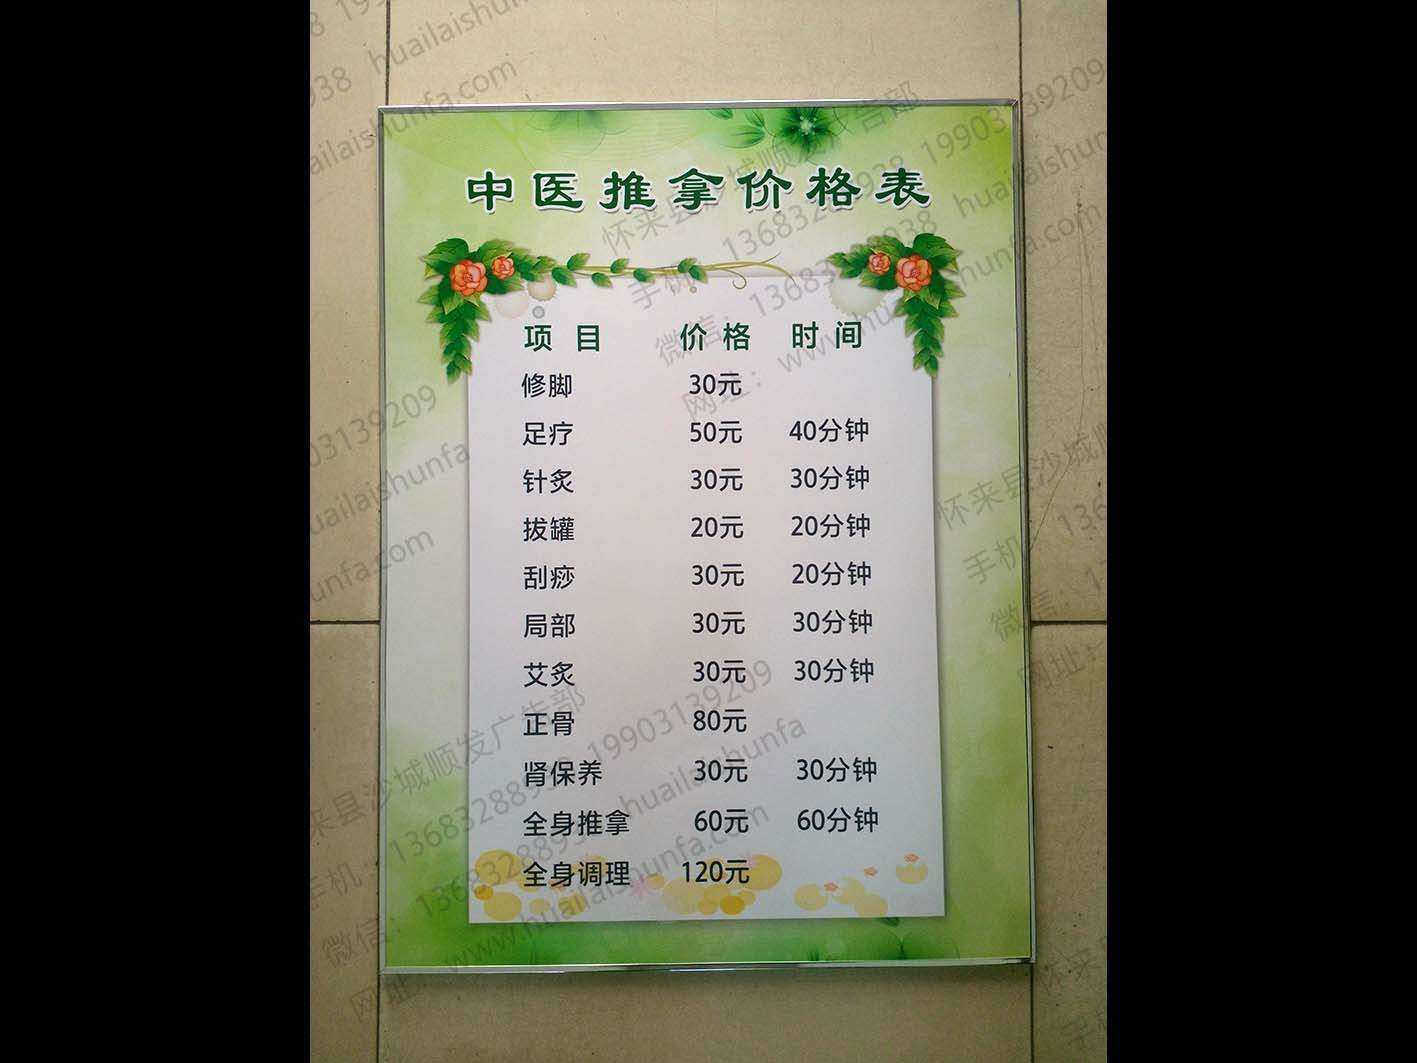 中医推拿价格表
项目 价格 时间
修脚 30元
足疗 50元 40分钟
针炙 30元 30分钟
拔罐 20元 20分钟
刮痧 30元 20分钟
局部 30元 30分钟
艾炙 30元 30分钟
正骨 80元
肾保养 30元 30分钟
全身推拿 60元 60分钟
全身调理 120元
怀来县沙城顺发广告部
手机：13683288938 19903139209
微信：13683288938 huailaishunfa
网址：www.huailaishunfa.com